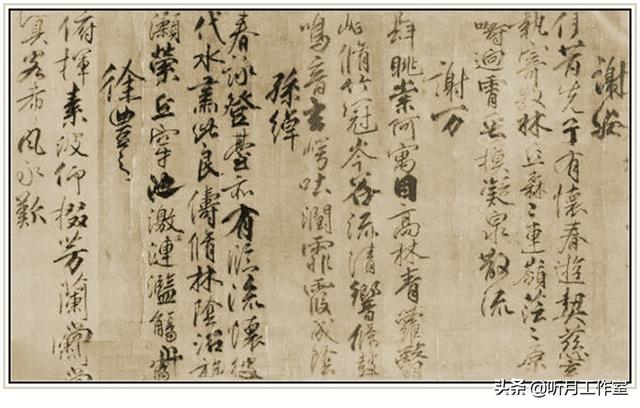 謝安
伊昔先子有懷春遊契茲言
執寄敖林丘森〻連嶺茫〻原
疇迥霄垂凝泉散流
謝万
肆眺崇阿寓目高林青蘿翳
岫脩竹冠岑谷流清響條鼓
鳴音玄崿吐潤霏霧成陰
孫綽
春詠登臺亦有臨流懷彼
伐木肅此良儔脩林陰沼旋
瀨縈丘穿池激漣濫觴
徐豐之
俯揮素波仰掇芳蘭尚
客希風永歎
头条 @听月工作室